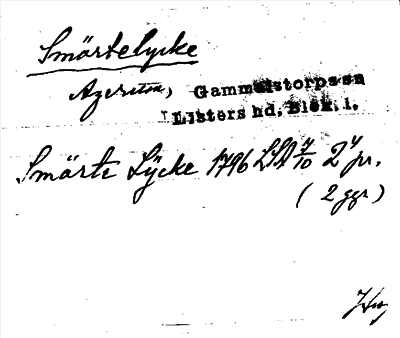 Smörtelycke
Ageröden, Gammalstorps sn
Listers hd, Blek. l.
Smörte Lÿcke 1796 LSA 7/10 2 pr.
( 2 ggr )